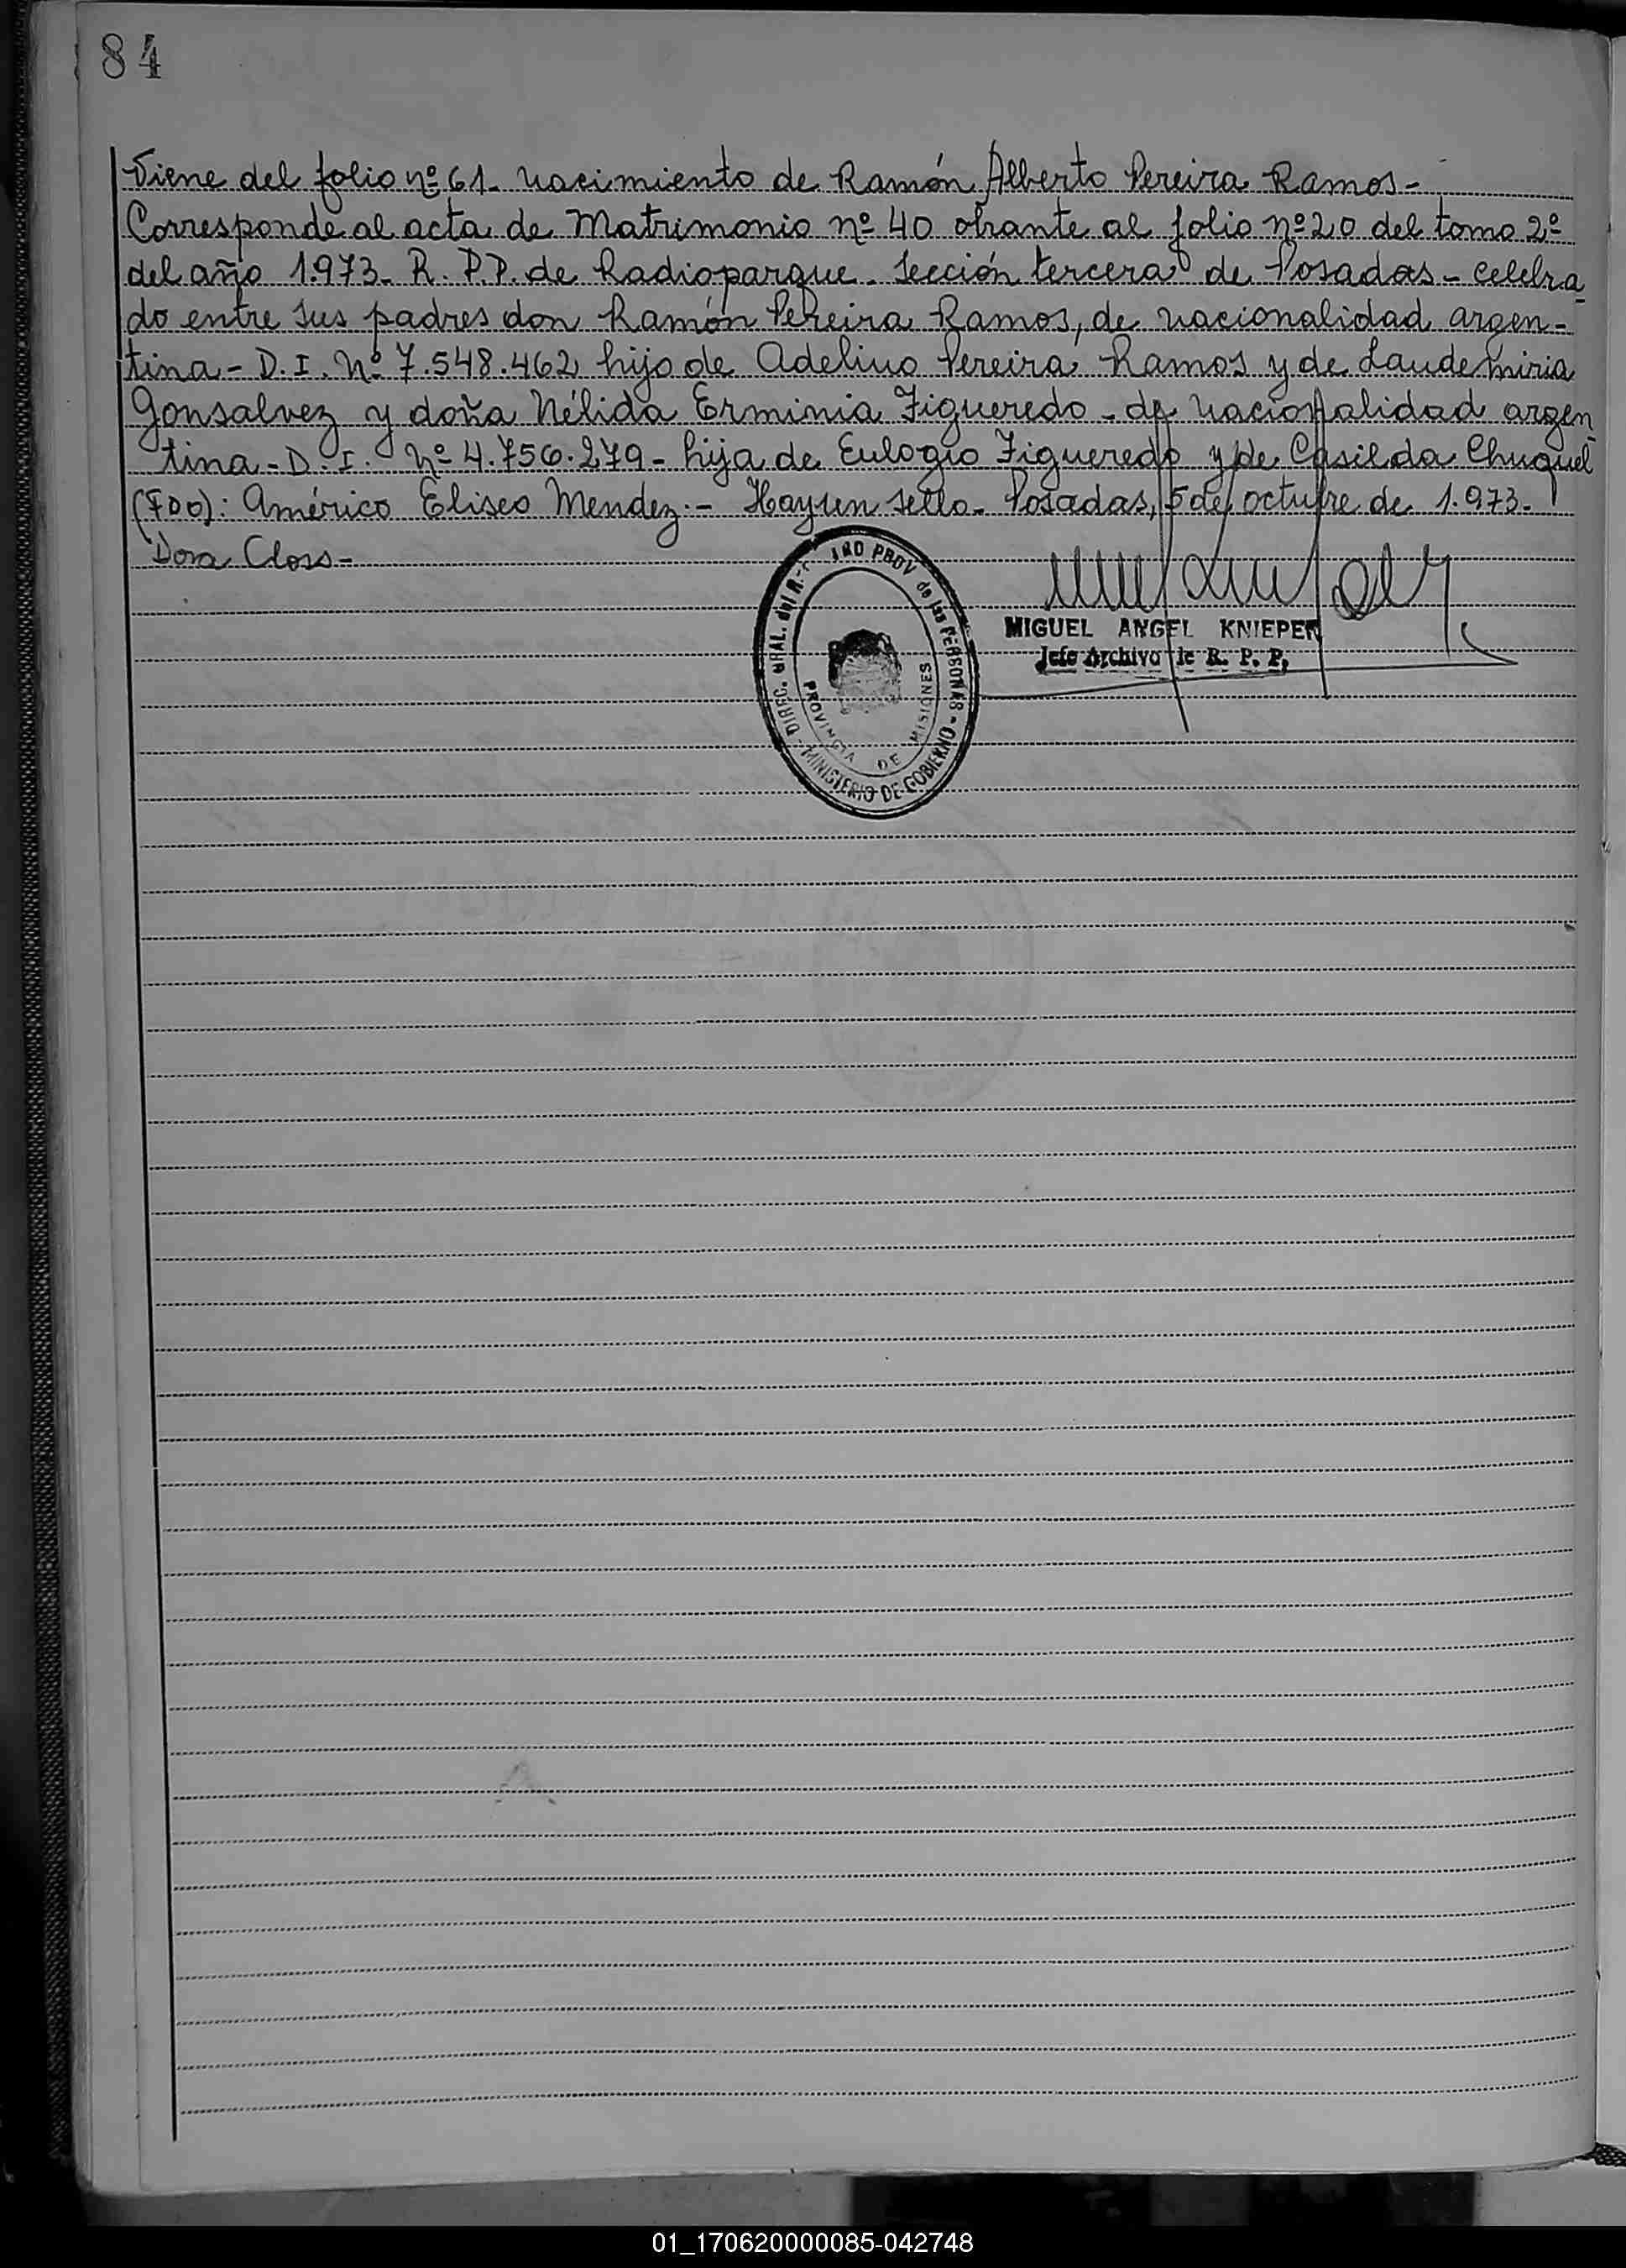 84
Viene del folio nº 61. nacimiento de Ramón Alberto Pereira Ramos-
Corresponde al acta de Matrimonio nº 40 obrante al folio nº 20 del tomo 2º
del año 1.973- R. P.P. de Radioparque. Sección tercera de Posadas - celebra
do entre sus padres don Ramón Pereira Ramos, de nacionalidad argen-
tina - D. I. Nº 7.548.462 hijo de Adelino Pereira Ramos y de Laudemiria
Gonsalvez y doña Nélida Erminia Figueredo - de nacionalidad argen
tina - D. I. Nº 4.756.279 - hija de Eulogio Figueredo y de Casilda Chuquel
(FDO): Américo Eliseo Mendez.- Hay un sello. Posadas, 5 de octubre de 1.973.
Dora Closs-
DIREC. GRAL. del PROV de las PERSONAS - MINISTERIO DE GOBIERNO -
PROVINCIA DE MISIONES
MIGUEL ANGEL KNIEPER
Jefe Archivo de R. P. P,
01_170620000085-042748